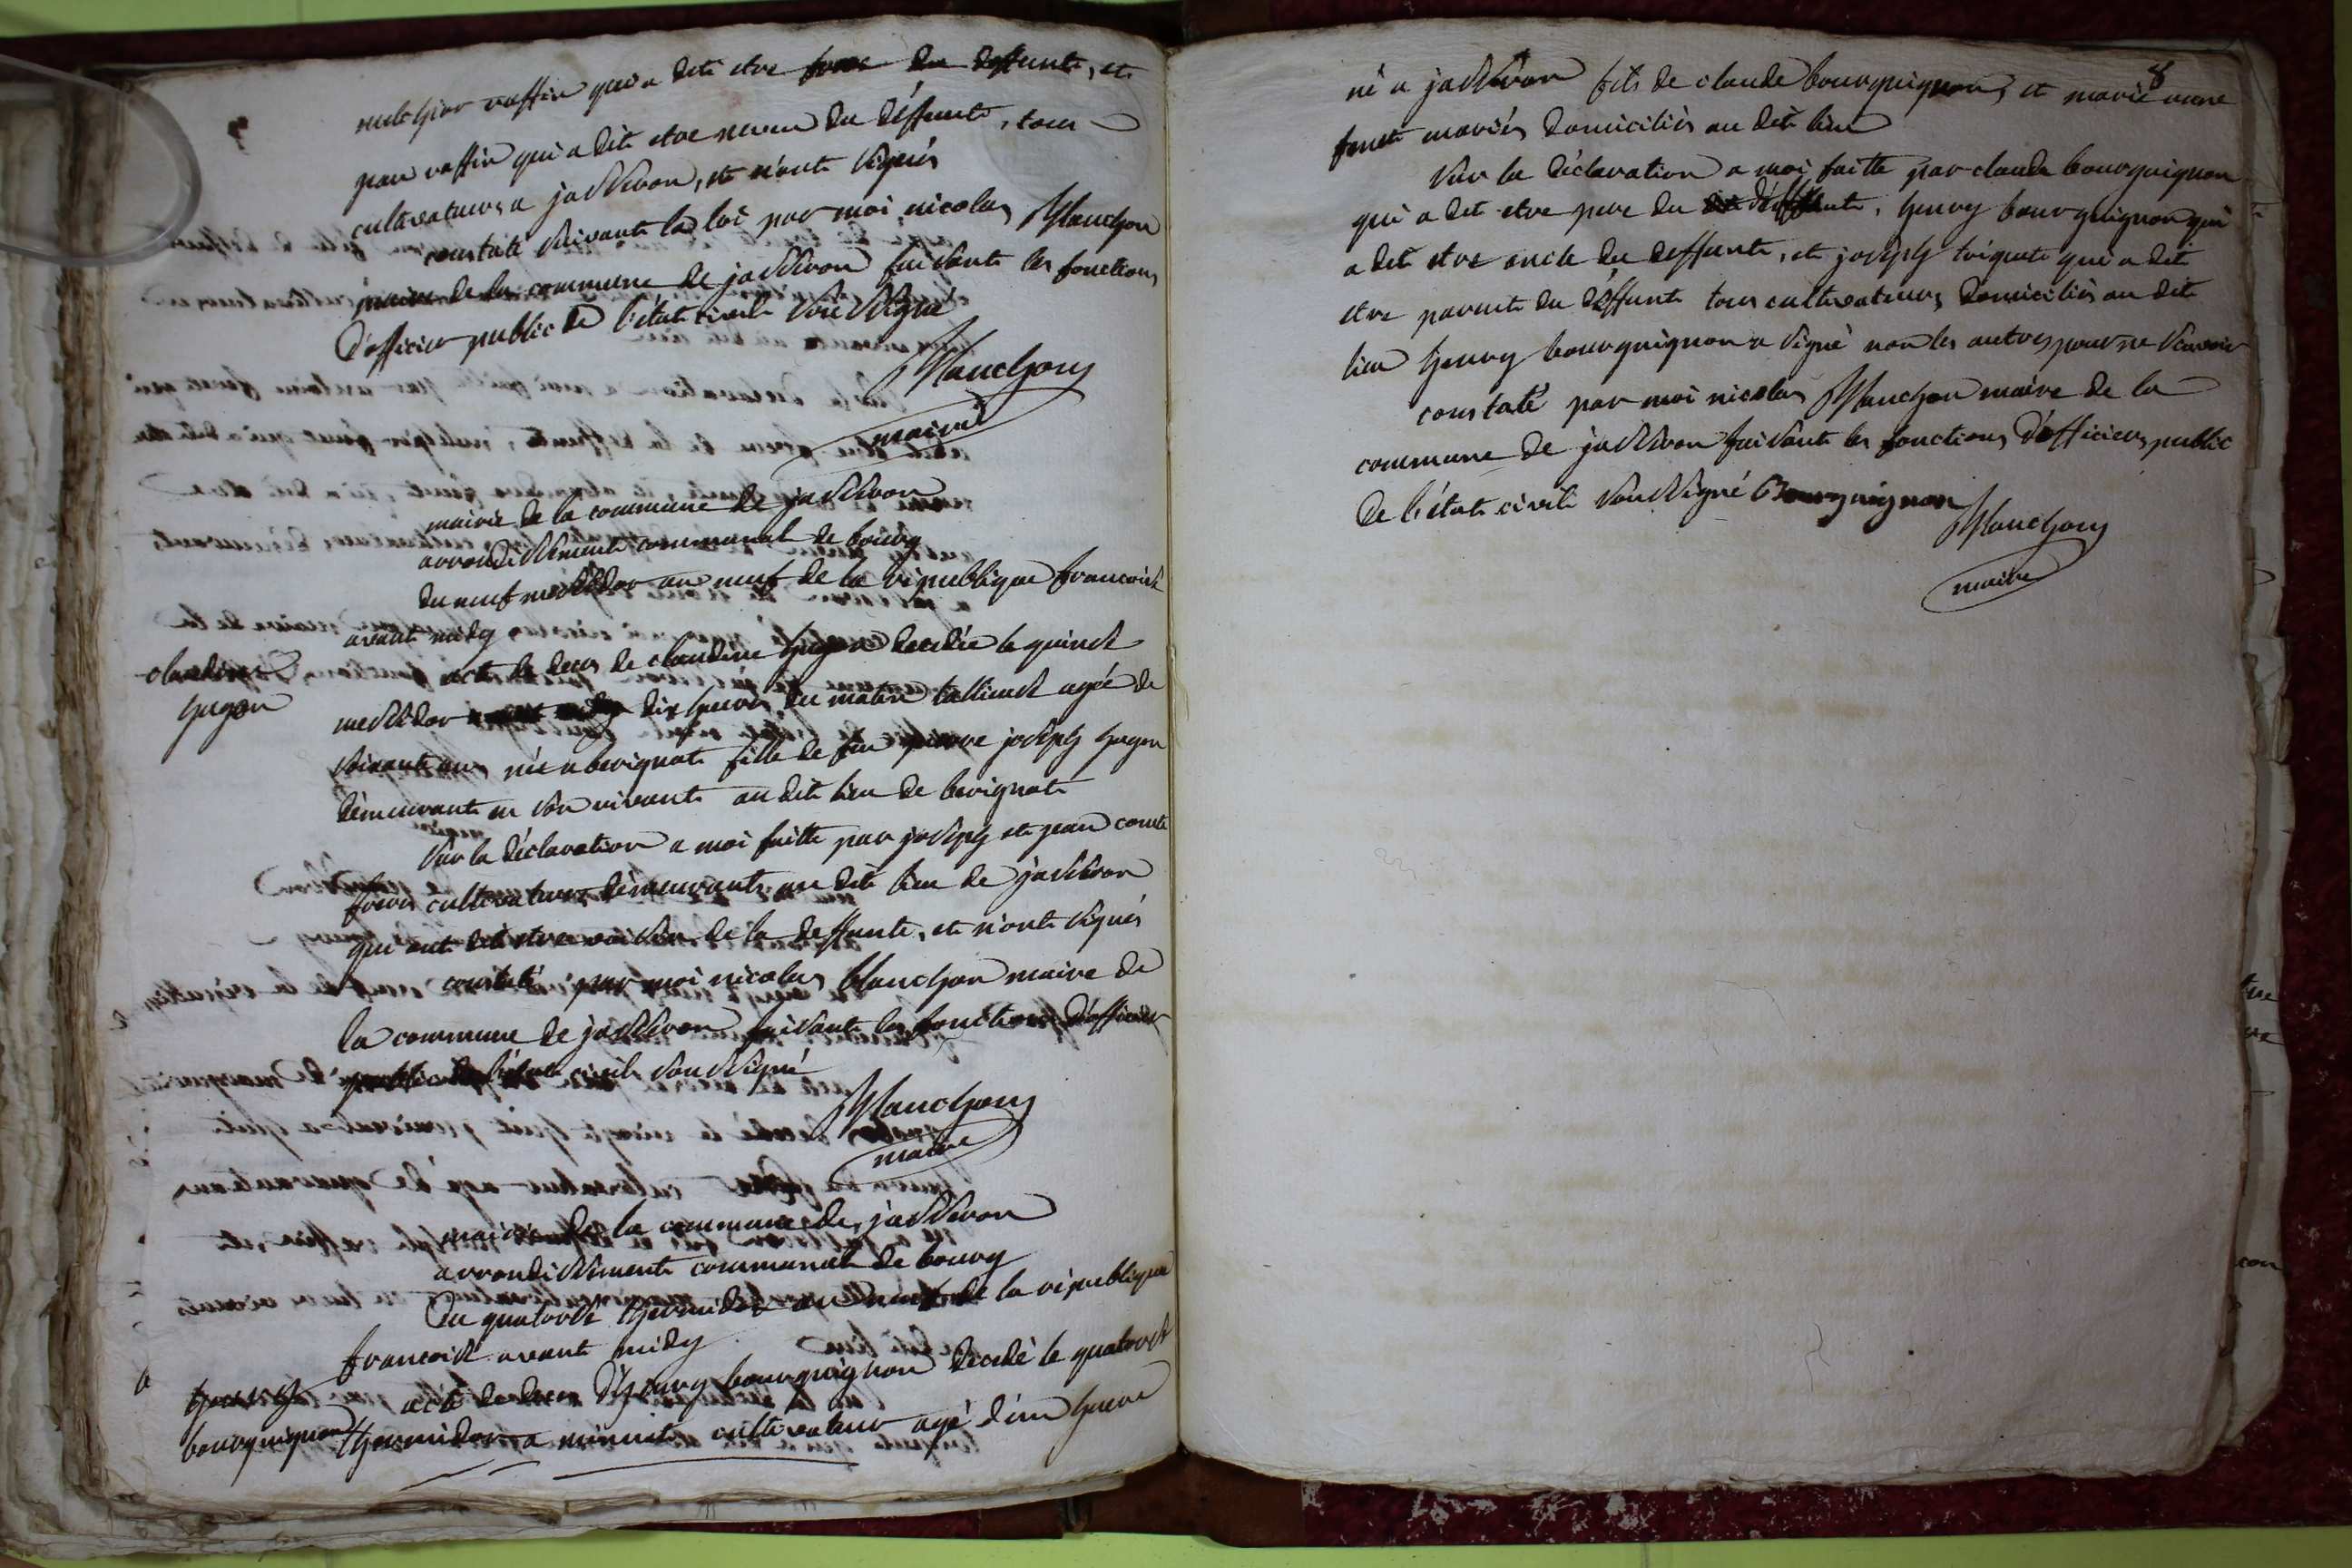 melchior raffin qui a dit etre frere du deffunt, et
jean raffin qui a dit etre neveu du déffunt, tous
cultivateurs a jasseron, et n'ont signés
constaté suivant la loi par moi nicolas Blanchon
maire de la commune de jasseron faisant les fonctions
d'officier public de l'état civil soussigné
Blanchon
maire
mairie de la commune de jasseron
arrondissement communal de bourg
du neuf messidor an neuf de la république francoise
avant midy
claudine
hugon
acte de deces de claudine hugon decedée le quinse
messidor dix heures du matin agée de
soixante ans née a berignat fille de feu pierre joseph hugon
demeurant en son vivant au dit lieu de berignat
sur la déclaration a moi faitte par joseph et jean comte
freres cultivateurs demeurants au dit lieu de jasseron
qui ont dit etre voisin de la deffunte, et n'ont signés
constaté par moi nicolas blanchon maire de
la commune de jasseron faisant les fonctions d'officier
public de l'état civil soussigné
Blanchon
maire
mairie de la commune de jasseron
arrondissement communal de bourg
du quatorse thermidor an neuf de la république
francoise avant midy
henry
bourguignon
acte de deces d'henry bourguignon decedé le quatorse
thermidor a minuit cultivateur agé d'un heure
8
né a jasseron fils de claude bourguignon, et marie anne
mariés domiciliés au dit lieu
sur la déclaration a moi faitte par claude bourguignon
qui a dit etre pere du déffunt, henry bourguignon qui
a dit etre oncle du deffunt, et joseph qui a dit
etre parent du déffunt tous cultivateurs domiciliés au dit
lieu henry bourguignon a signé non les autres pour ne scavoir
constaté par moi nicolas Blanchon maire de la
commune de jasseron faisant les fonctions d'officiers public
de l'état civil soussigné Bourguignon
Blanchon
maire